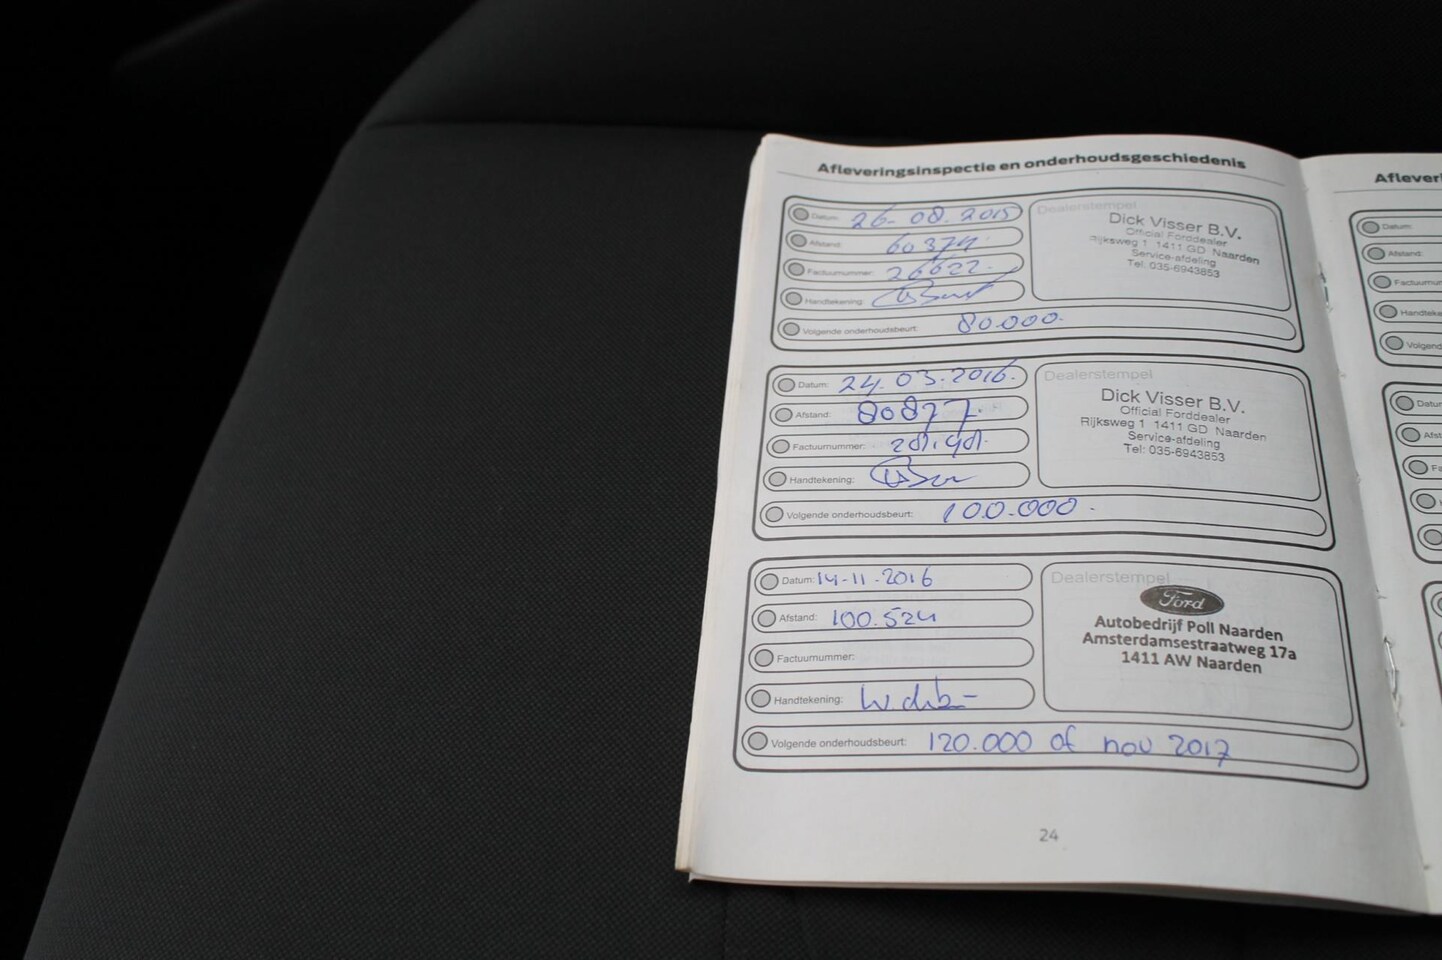 Afleveringsinspectie en onderhoudsgeschiedenis
Datum: 26-08.2015
Afstand: 60374
Factuurnummer: 26622.
Handtekening:
Volgende onderhoudsbeurt: 80.000.
Dealerstempel
Dick Visser B.V.
Official Forddealer
Rijksweg 1 1411 GD Naarden
Service-afdeling
Tel: 035-6943853
Datum: 24.03.2016.
Afstand: 80877.
Factuurnummer:
Handtekening:
Volgende onderhoudsbeurt: 100.000.
Dealerstempel
Dick Visser B.V.
Official Forddealer
Rijksweg 1 1411 GD Naarden
Service-afdeling
Tel: 035-6943853
Datum: 14-11-2016
Afstand: 100.524
Factuurnummer:
Handtekening:
Volgende onderhoudsbeurt: 120.000 of nov 2017
Dealerstempel
Ford
Autobedrijf Poll Naarden
Amsterdamsestraatweg 17a
1411 AW Naarden
24
Datum:
Afstand: